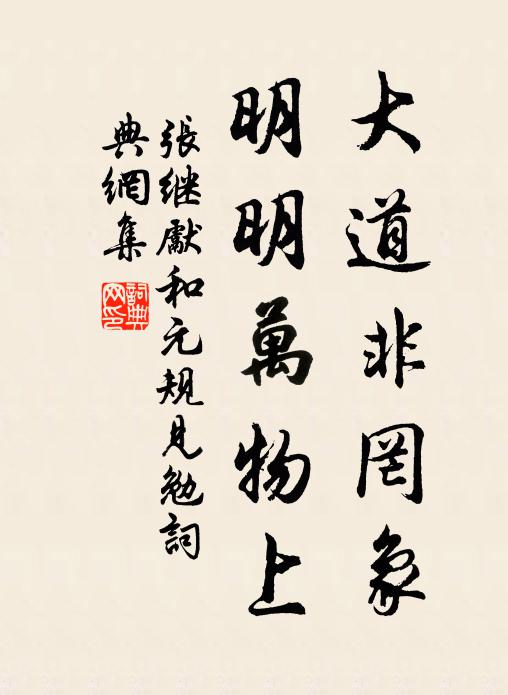 大道非罔象
明明萬物上
張继獻和元规見勉詞
典網集
詞典网印